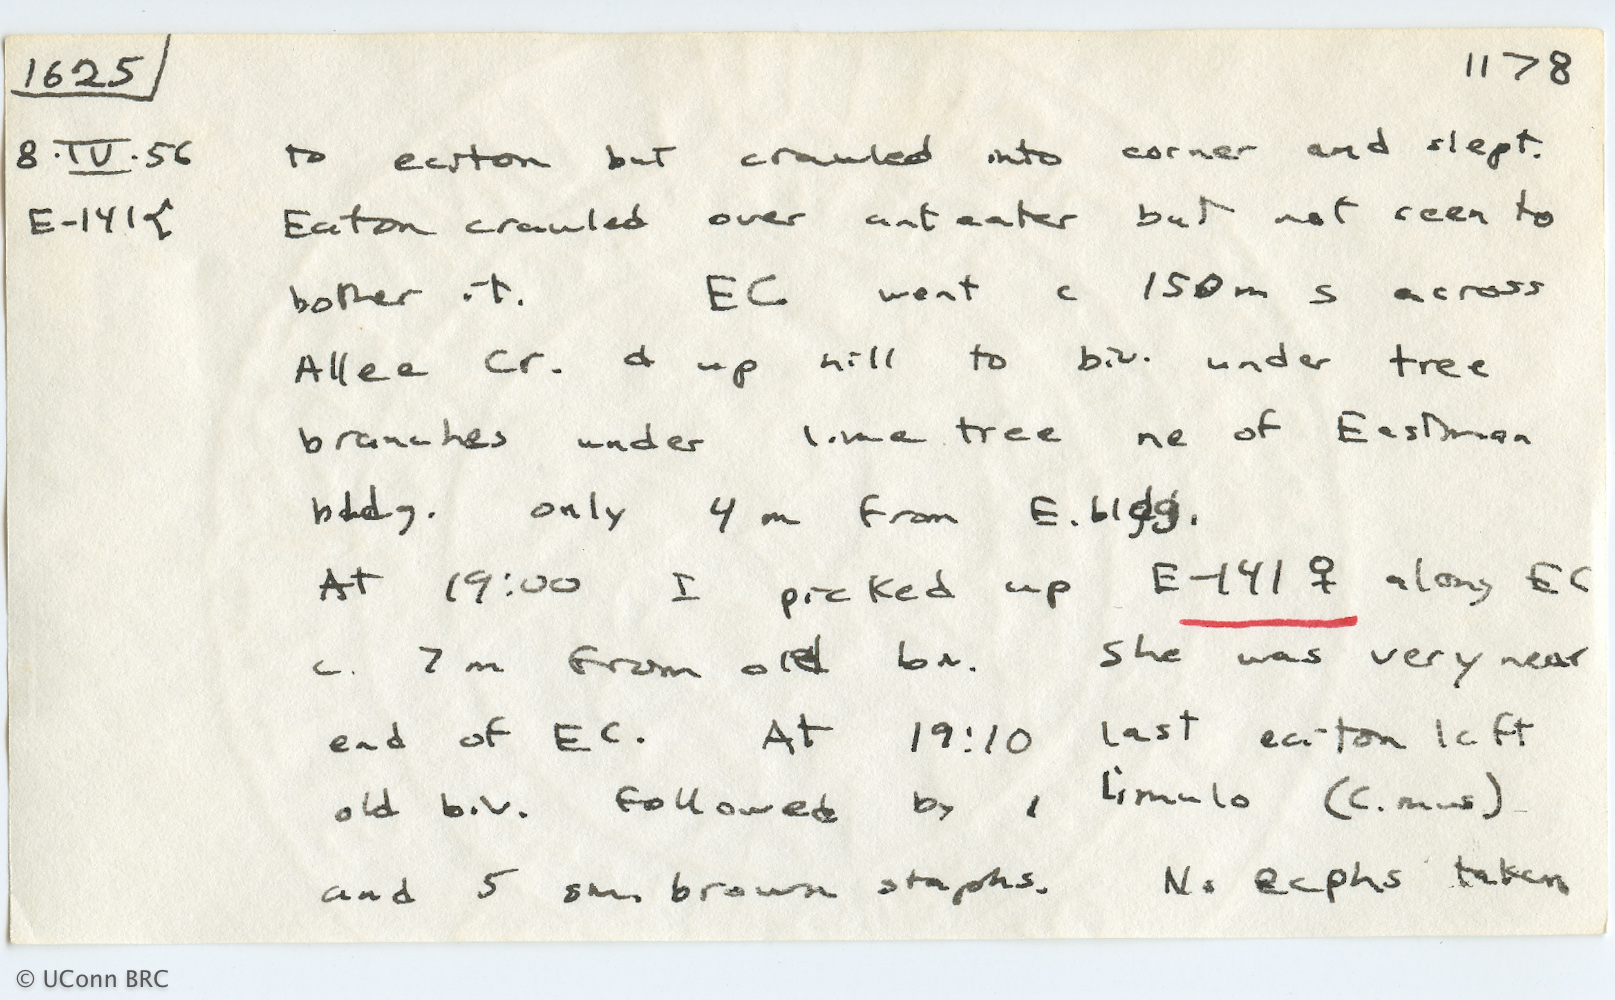 1625 1178
8·IV·56 to eciton but crawled into corner and slept.
E-141{ Eciton crawled over anteater but not seen to
bother it. EC went c 150m s across
Allee Cr. & up hill to biv. under tree
branches under lime tree ne of Eastman
bldg. only 4 m from E. bldg.
At 19:00 I picked up E-141 ♀ along EC
c. 7 m from old biv. She was very near
end of EC. At 19:10 last eciton left
old biv. Followed by 1 limulo (C. mus)
and 5 sm. brown staphs. No ecphs taken
© UConn BRC